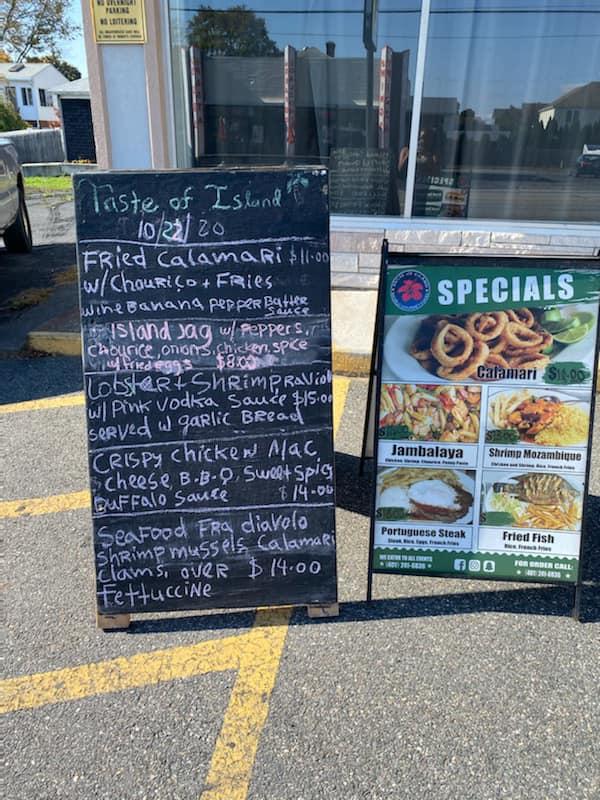 NO OVERNIGHT
PARKING
NO LOITERING
Taste of Island
10/22/20
FRied CalamaRi $11.00
w/ ChouRiço + FRies
wine Banana pepper Butter
Sauce
Island Jag w/ Peppers,
chourice, onions, chicken, spice
w/ fried eggs $8.00
LobsteR + ShRimp Raviol
w/ Pink Vodka Sauce $15.00
seRved w gaRlic BRead
CRISPy chicken Mac
Cheese B.B.Q, Sweet Spicy
Buffalo Sauce $14.00
Seafood FRa diavolo
shRimp mussels Calamari
clams, oveR $14.00
fettuccine
SPECIALS
Calamari $11.00
Jambalaya
Shrimp Mozambique
Portuguese Steak
Steak, Rice, Eggs, French Fries
Fried Fish
Rice, French Fries
WE CATER TO ALL EVENTS
FOR ORDER CALL: